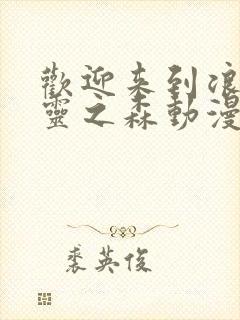 歡迎来到浪
靈之森動漫
裘英俊